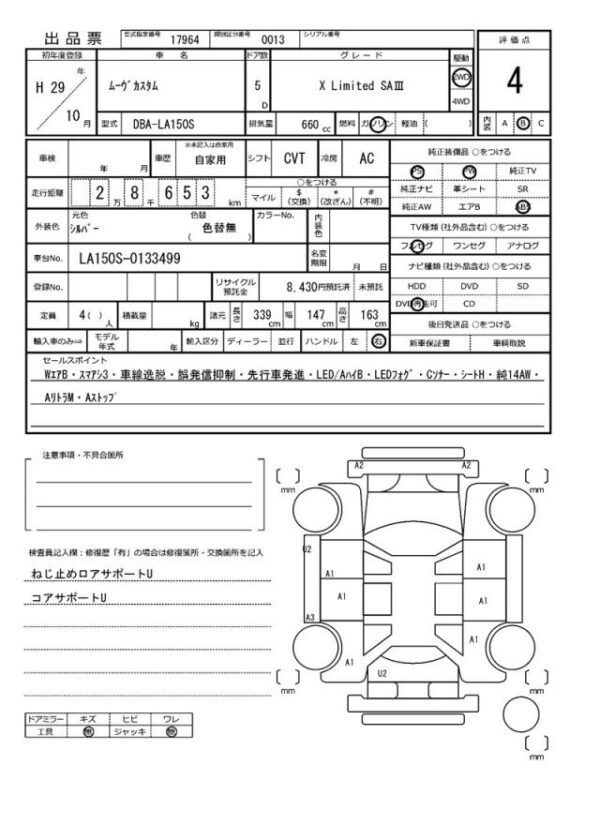 出品票 型式指定番号 17964 類別区分番号 0013 シリアル番号
評価点
初年度登録 車名 ドア数 グレード 駆動
H 29 年 ムーヴカスタム 5 D X Limited SAⅢ 2WD 4
10 月 4WD
型式 DBA-LA150S 排気量 660 cc 燃料 ガソリン 軽油 ( ) 内装 A B C
車検 年 月 車歴 ※未記入は自家用 自家用 シフト CVT 冷房 AC 純正装備品 ○をつける
PS PW 純正TV
走行距離 2 万 8 千 6 5 3 km ○をつける
マイル $ (交換) * (改ざん) # (不明)
純正ナビ 革シート SR
純正AW エアB ABS
外装色 元色 シルバー 色替 ( 色替無 ) カラーNo. 内装色
TV種類 (社外品含む) ○をつける
フルセグ ワンセグ アナログ
車台No. LA150S-0133499 名変期限 月 日
ナビ種類 (社外品含む) ○をつける
登録No. リサイクル預託金 8,430円預託済 未預託
HDD DVD SD
DVD再生可 CD
定員 4 ( ) 人 積載量 kg 諸元 長さ 339 cm 幅 147 cm 高さ 163 cm
後日発送品 ○をつける
輸入車のみ⇒ モデル年式 年 輸入区分 ディーラー 並行 ハンドル 左 右
新車保証書 車輌取説
セールスポイント
WエアB・スマアシ3・車線逸脱・誤発信抑制・先行車発進・LED/AハイB・LEDフォグ・Cソナー・シートH・純14AW・
AリトラM・Aストップ
注意事項・不具合箇所
検査員記入欄：修復歴「有」の場合は修復箇所・交換箇所を記入
ねじ止めロアサポートU
コアサポートU
A2 A2
mm mm
U2
A1 A1
A1 A1
A3
A1 A1
U2
mm mm
mm
ドアミラー キズ ヒビ ワレ
工具 無 ジャッキ 無